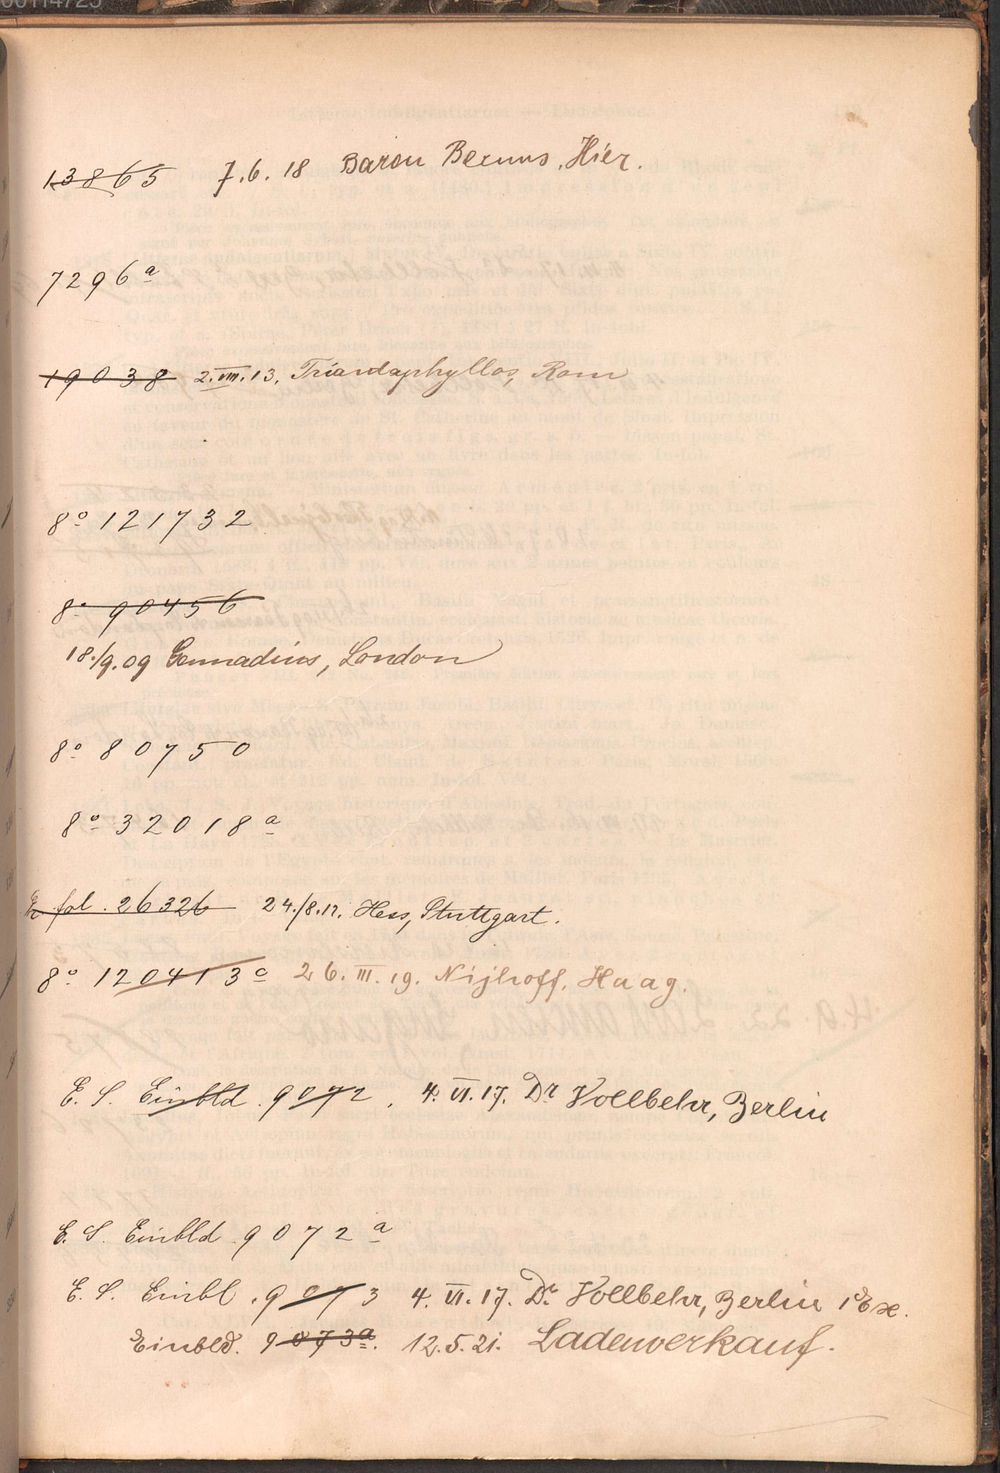 13865 7.6.18 Baron Bernus, Hier.
7296a
19038 2.VIII.13. Triandaphyllos, Rom
8o 121732
8o 90456
18./9.09 Gennadius, London
8o 80750
8o 32018a
fol. 26326 24./8.12. Hess, Stuttgart.
8o 120413c 26.III.19. Nijhoff, Haag.
E. S. Einbld. 9072, 4.VI.17. Dr Vollbehr, Berlin
E. S. Einbld 9072a
E. S. Einbl. 9073 4.VI.17. Dr. Vollbehr, Berlin 1 Ex.
Einbld. 9073a. 12.5.21. Ladenverkauf.